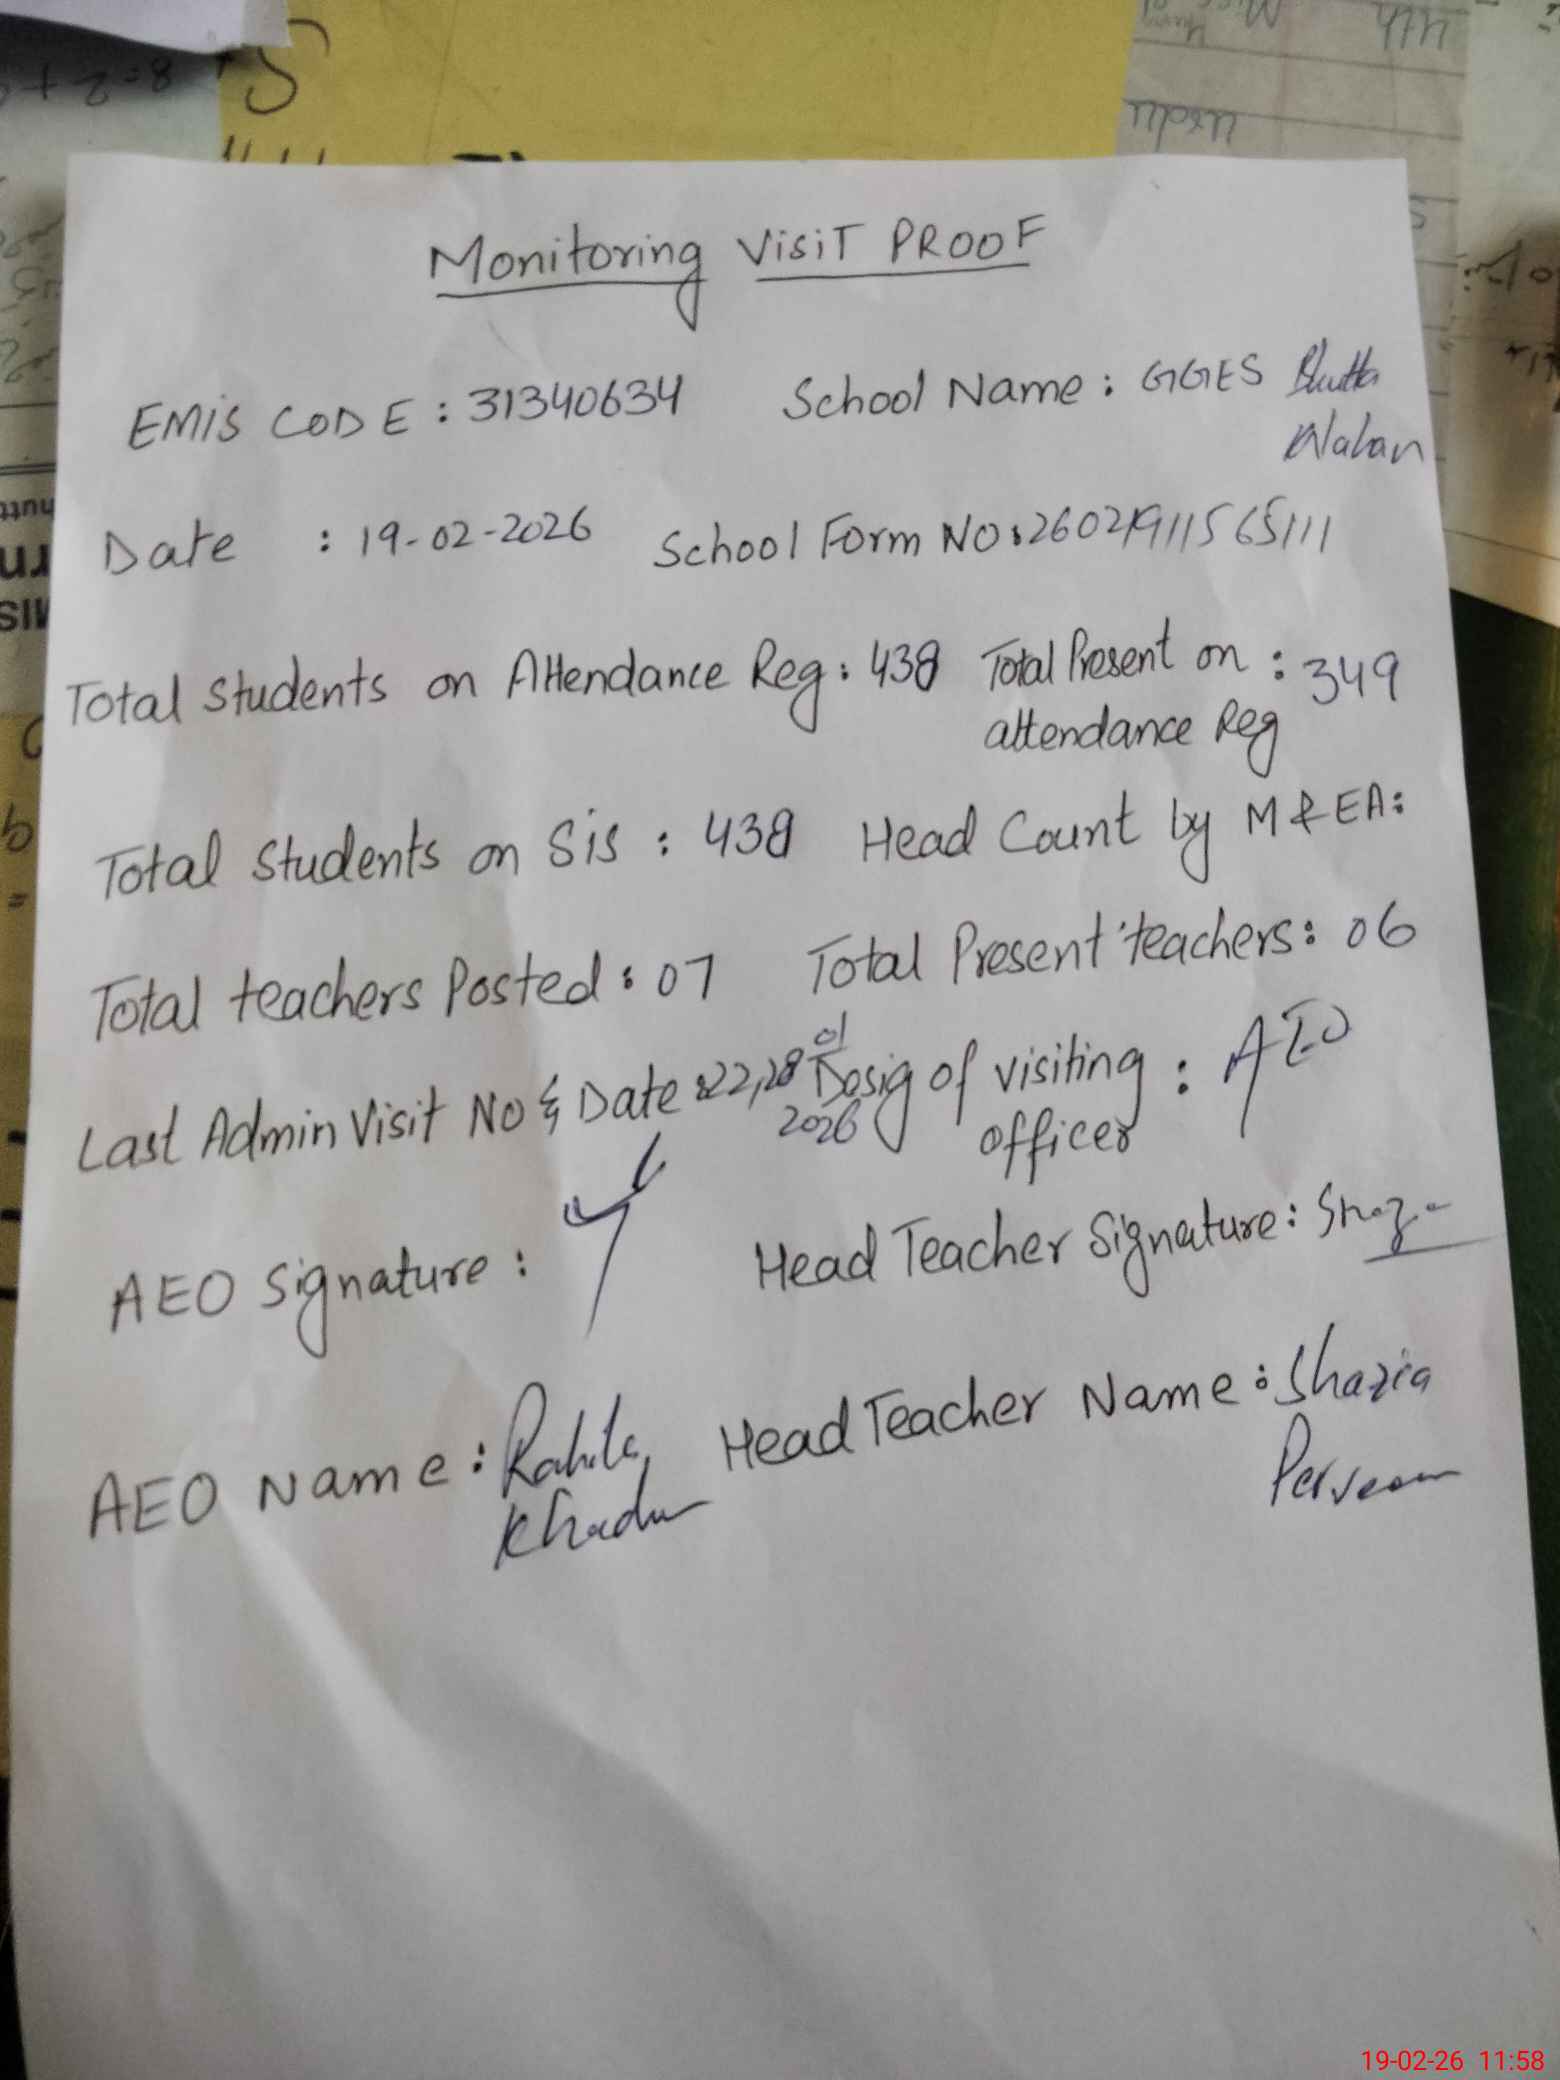 Monitoring VisiT PROOF
EMiS CODE : 31340634 School Name : GGES Bhutta
Wahan
Date : 19-02-2026 School Form NO : 26021911565111
Total Students on Attendance Reg : 438 Total Present on : 349
attendance Reg
Total Students on Sis : 438 Head Count by M & EA :
Total teachers Posted : 07 Total Present teachers : 06
Last Admin Visit No & Date : 22, 28 01 Desig of visiting : AEO
2026 officer
AEO Signature : Head Teacher Signature :
AEO Name : Rahila Head Teacher Name : Shazia
Perveen
19-02-26 11:58